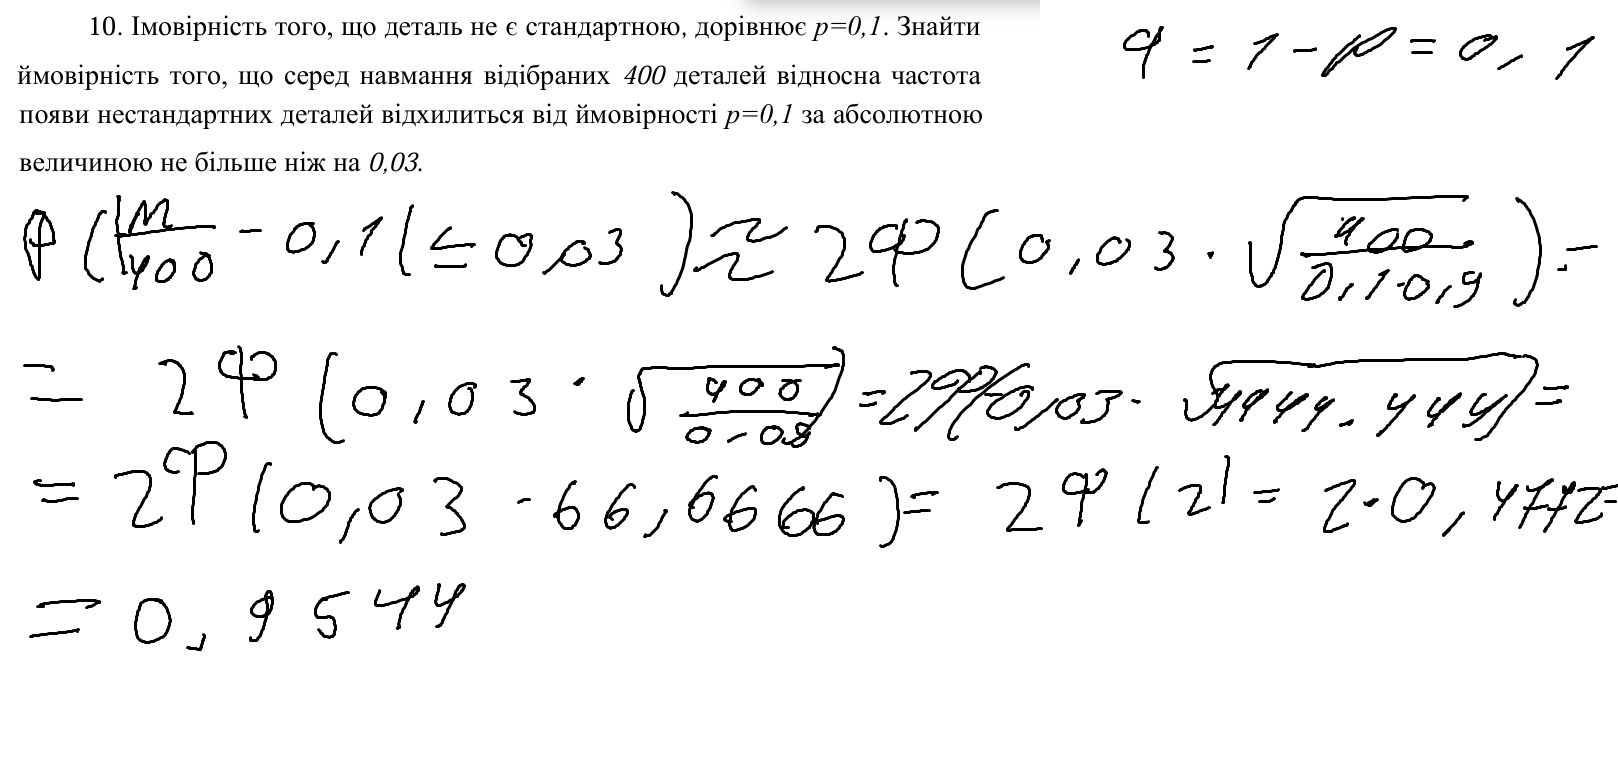 10. Імовірність того, що деталь не є стандартною, дорівнює p=0,1. Знайти
q = 1 - p = 0,1
ймовірність того, що серед навмання відібраних 400 деталей відносна частота
появи нестандартних деталей відхилиться від ймовірності p=0,1 за абсолютною
величиною не більше ніж на 0,03.
P(|m/400 - 0,1| ≤ 0,03) ≈ 2Φ(0,03 · √(400/(0,1·0,9))) =
= 2Φ(0,03 · √(400/0,09)) = 2Φ(0,03 · √4444,444) =
= 2Φ(0,03 · 66,6666) = 2Φ(2) = 2·0,4772 =
= 0,9544